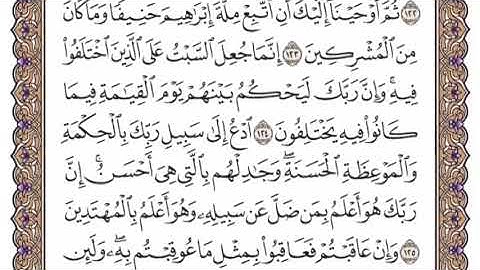 ١٢٢ ثُمَّ أَوْحَيْنَا إِلَيْكَ أَنِ ٱتَّبِعْ مِلَّةَ إِبْرَٰهِيمَ حَنِيفًا وَمَا كَانَ
مِنَ ٱلْمُشْرِكِينَ ١٢٣ إِنَّمَا جُعِلَ ٱلسَّبْتُ عَلَى ٱلَّذِينَ ٱخْتَلَفُوا۟
فِيهِ ۚ وَإِنَّ رَبَّكَ لَيَحْكُمُ بَيْنَهُمْ يَوْمَ ٱلْقِيَٰمَةِ فِيمَا
كَانُوا۟ فِيهِ يَخْتَلِفُونَ ١٢٤ ٱدْعُ إِلَىٰ سَبِيلِ رَبِّكَ بِٱلْحِكْمَةِ
وَٱلْمَوْعِظَةِ ٱلْحَسَنَةِ ۖ وَجَٰدِلْهُم بِٱلَّتِى هِىَ أَحْسَنُ ۚ إِنَّ
رَبَّكَ هُوَ أَعْلَمُ بِمَن ضَلَّ عَن سَبِيلِهِۦ وَهُوَ أَعْلَمُ بِٱلْمُهْتَدِينَ
١٢٥ وَإِنْ عَاقَبْتُمْ فَعَاقِبُوا۟ بِمِثْلِ مَا عُوقِبْتُم بِهِۦ ۖ وَلَئِن